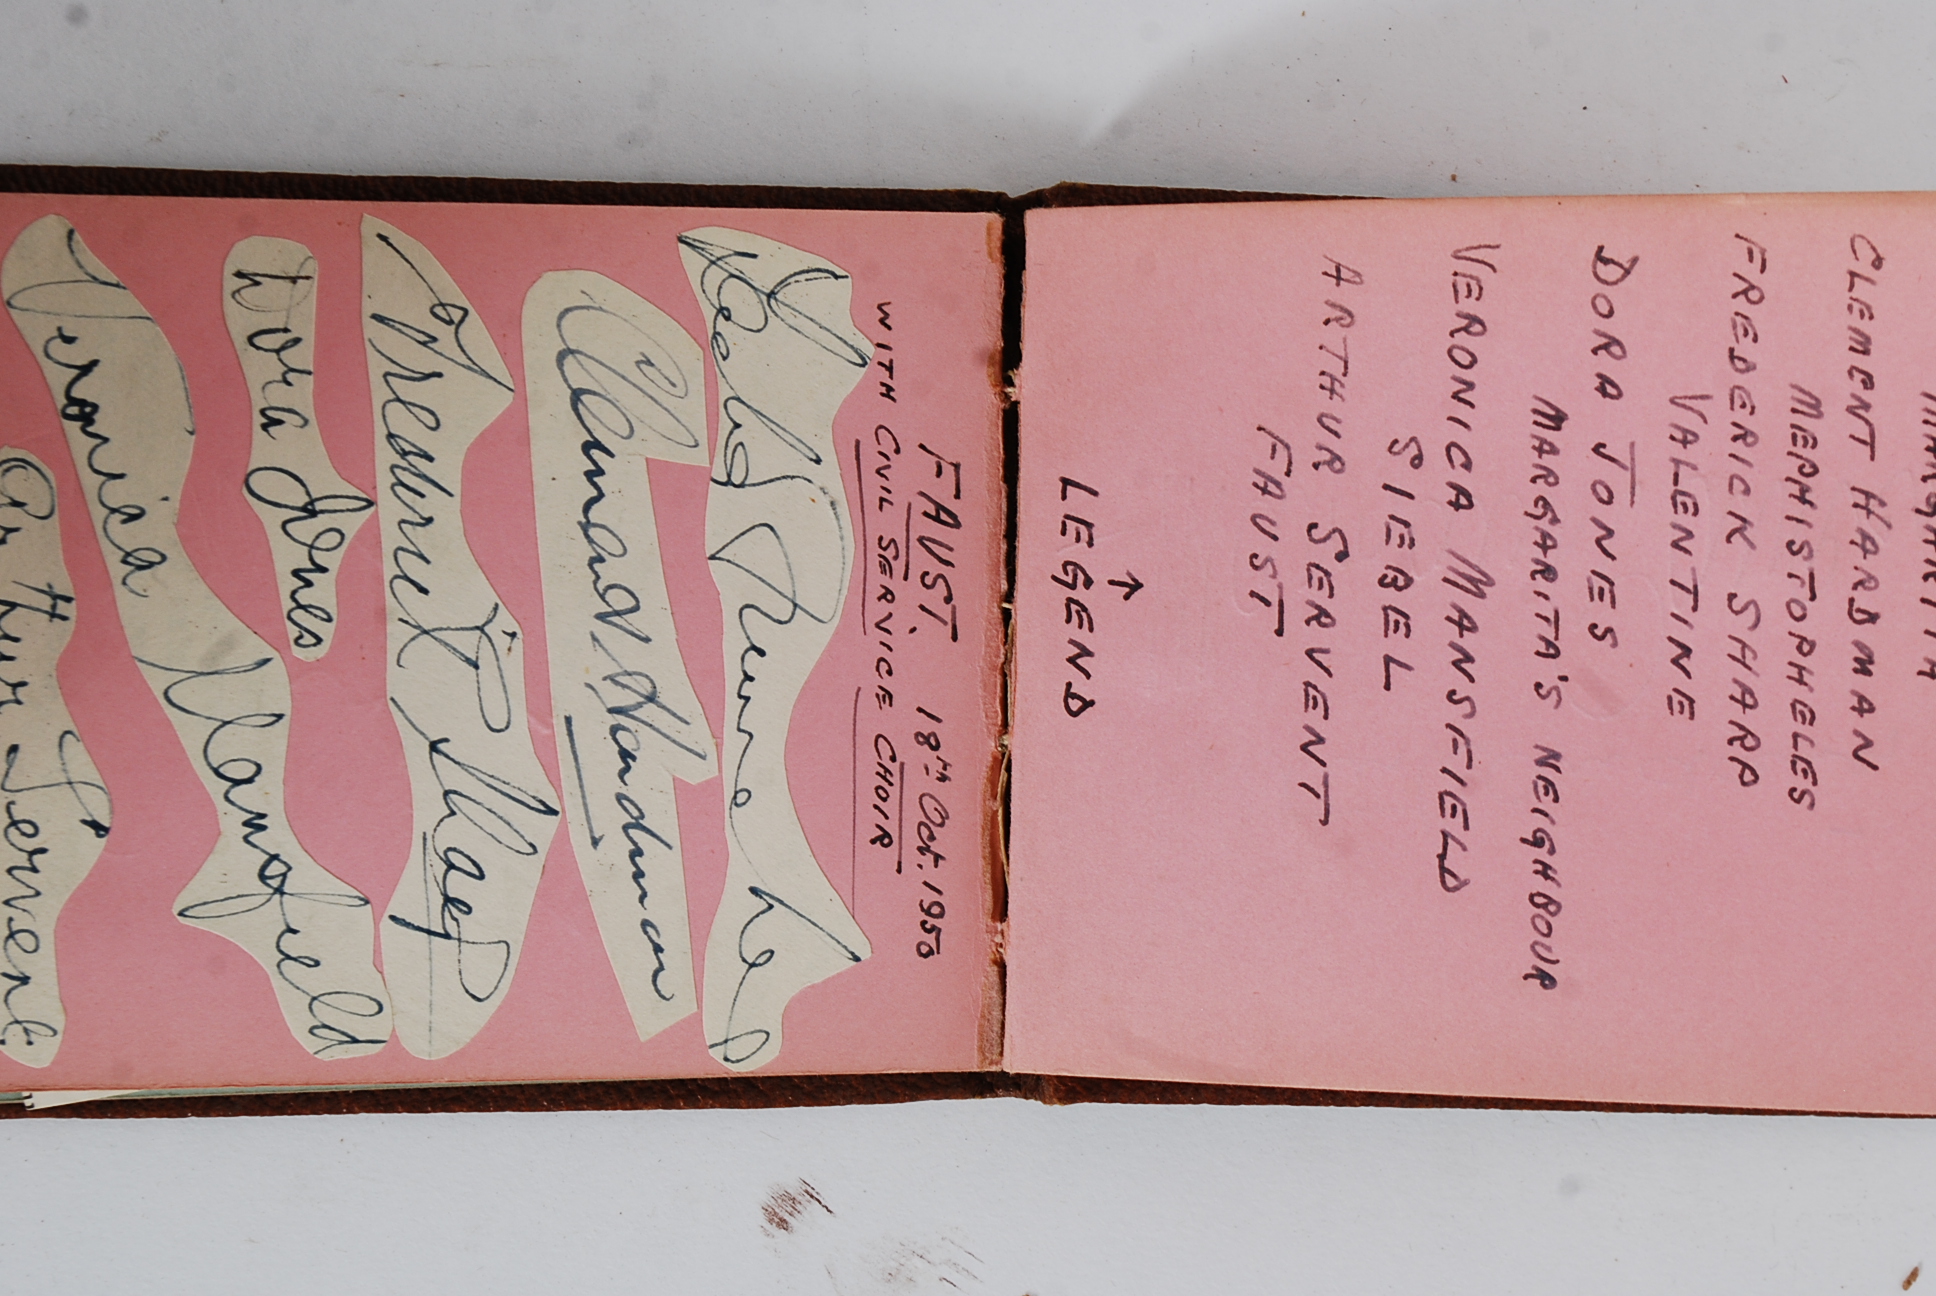 MARGARITA
CLEMENT HARDMAN
MEPHISTOPHELES
FREDERICK SHARP
VALENTINE
DORA JONES
MARGARITA'S NEIGHBOUR
VERONICA MANSFIELD
SIEBEL
ARTHUR SERVENT
FAUST
↑
LEGEND
FAUST. 18TH Oct. 1950
WITH CIVIL SERVICE CHOIR
Clement Hardman
Frederick Sharp
Dora Jones
Veronica Mansfield
Arthur Servent